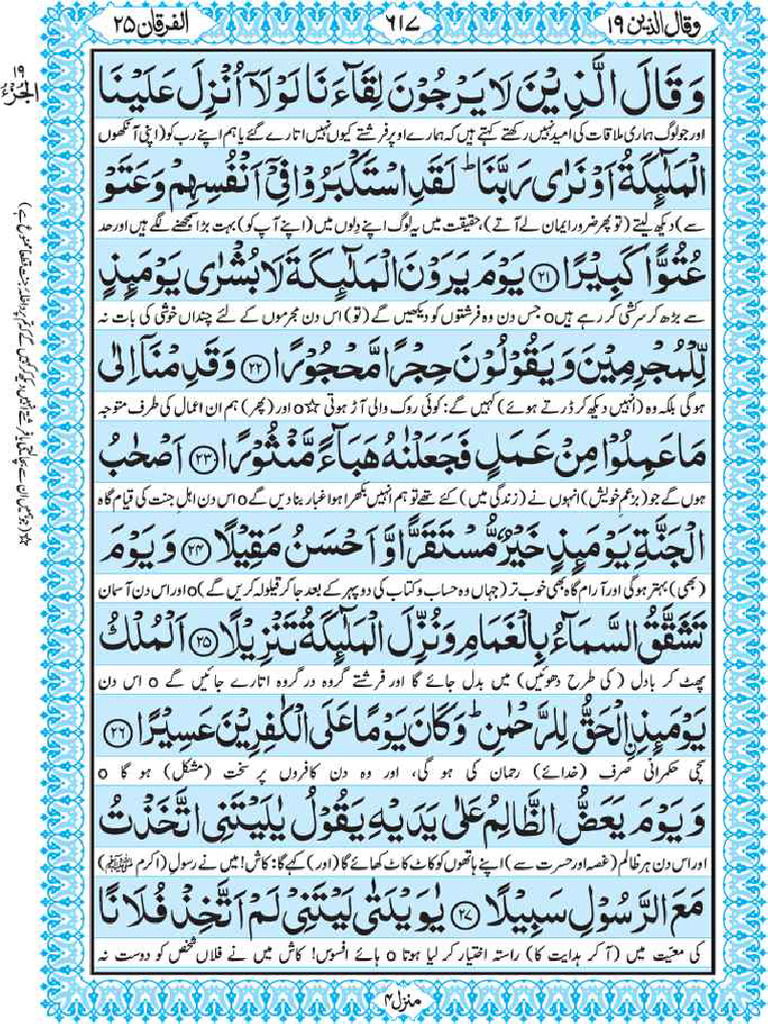 وقال الذين ۱۹
۶۱۷
الفرقان ۲۵
۱۹
الجزء
وَقَالَ الَّذِيْنَ لَا يَرْجُوْنَ لِقَآءَنَا لَوْلَآ اُنْزِلَ عَلَيْنَا
اور جو لوگ ہماری ملاقات کی امید نہیں رکھتے کہتے ہیں کہ ہمارے اوپر فرشتے کیوں نہیں اتارے گئے یا ہم اپنے رب کو (اپنی آنکھوں
الْمَلٰٓئِكَةُ اَوْ نَرٰى رَبَّنَا ؕ لَقَدِ اسْتَكْبَرُوْا فِيْٓ اَنْفُسِهِمْ وَعَتَوْ
سے) دیکھ لیتے (تو پھر ضرور ایمان لے آتے)، حقیقت میں یہ لوگ اپنے دلوں میں (اپنے آپ کو) بہت بڑا سمجھنے لگے ہیں اور حد
عُتُوًّا كَبِيْرًا ﴿۲۱﴾ يَوْمَ يَرَوْنَ الْمَلٰٓئِكَةَ لَا بُشْرٰى يَوْمَئِذٍ
سے بڑھ کر سرکشی کر رہے ہیں o جس دن وہ فرشتوں کو دیکھیں گے (تو) اس دن مجرموں کے لئے چنداں خوشی کی بات نہ
لِّلْمُجْرِمِيْنَ وَيَقُوْلُوْنَ حِجْرًا مَّحْجُوْرًا ﴿۲۲﴾ وَقَدِمْنَآ اِلٰى
ہوگی بلکہ وہ (انہیں دیکھ کر ڈرتے ہوئے) کہیں گے: کوئی روک والی آڑ ہوتی ☆ o اور (پھر) ہم ان اعمال کی طرف متوجہ
مَا عَمِلُوْا مِنْ عَمَلٍ فَجَعَلْنٰهُ هَبَآءً مَّنْثُوْرًا ﴿۲۳﴾ اَصْحٰبُ
ہوں گے جو (بزعمِ خویش) انہوں نے (زندگی میں) کئے تھے تو ہم انہیں بکھرا ہوا غبار بنا دیں گے o اس دن اہلِ جنت کی قیام گاہ
الْجَنَّةِ يَوْمَئِذٍ خَيْرٌ مُّسْتَقَرًّا وَّاَحْسَنُ مَقِيْلًا ﴿۲۴﴾ وَيَوْمَ
(بھی) بہتر ہوگی اور آرام گاہ بھی خوب تر (جہاں وہ حساب و کتاب کی دوپہر کے بعد جا کر قیلولہ کریں گے) o اور اس دن آسمان
تَشَقَّقُ السَّمَآءُ بِالْغَمَامِ وَنُزِّلَ الْمَلٰٓئِكَةُ تَنْزِيْلًا ﴿۲۵﴾ اَلْمُلْكُ
پھٹ کر بادل (کی طرح دھوئیں) میں بدل جائے گا اور فرشتے گروہ در گروہ اتارے جائیں گے o اس دن
يَوْمَئِذِ ِۨالْحَقُّ لِلرَّحْمٰنِ ؕ وَكَانَ يَوْمًا عَلَى الْكٰفِرِيْنَ عَسِيْرًا ﴿۲۶﴾
سچی حکمرانی صرف (خدائے) رحمان کی ہو گی، اور وہ دن کافروں پر سخت (مشکل) ہو گا o
وَيَوْمَ يَعَضُّ الظَّالِمُ عَلٰى يَدَيْهِ يَقُوْلُ يٰلَيْتَنِى اتَّخَذْتُ
اور اس دن ہر ظالم (غصہ اور حسرت سے) اپنے ہاتھوں کو کاٹ کاٹ کھائے گا (اور) کہے گا: کاش! میں نے رسولِ (اکرم ﷺ)
مَعَ الرَّسُوْلِ سَبِيْلًا ﴿۲۷﴾ يٰوَيْلَتٰى لَيْتَنِيْ لَمْ اَتَّخِذْ فُلَانًا
کی معیّت میں (آ کر ہدایت کا) راستہ اختیار کر لیا ہوتا o ہائے افسوس! کاش میں نے فلاں شخص کو دوست نہ
منزل ۴